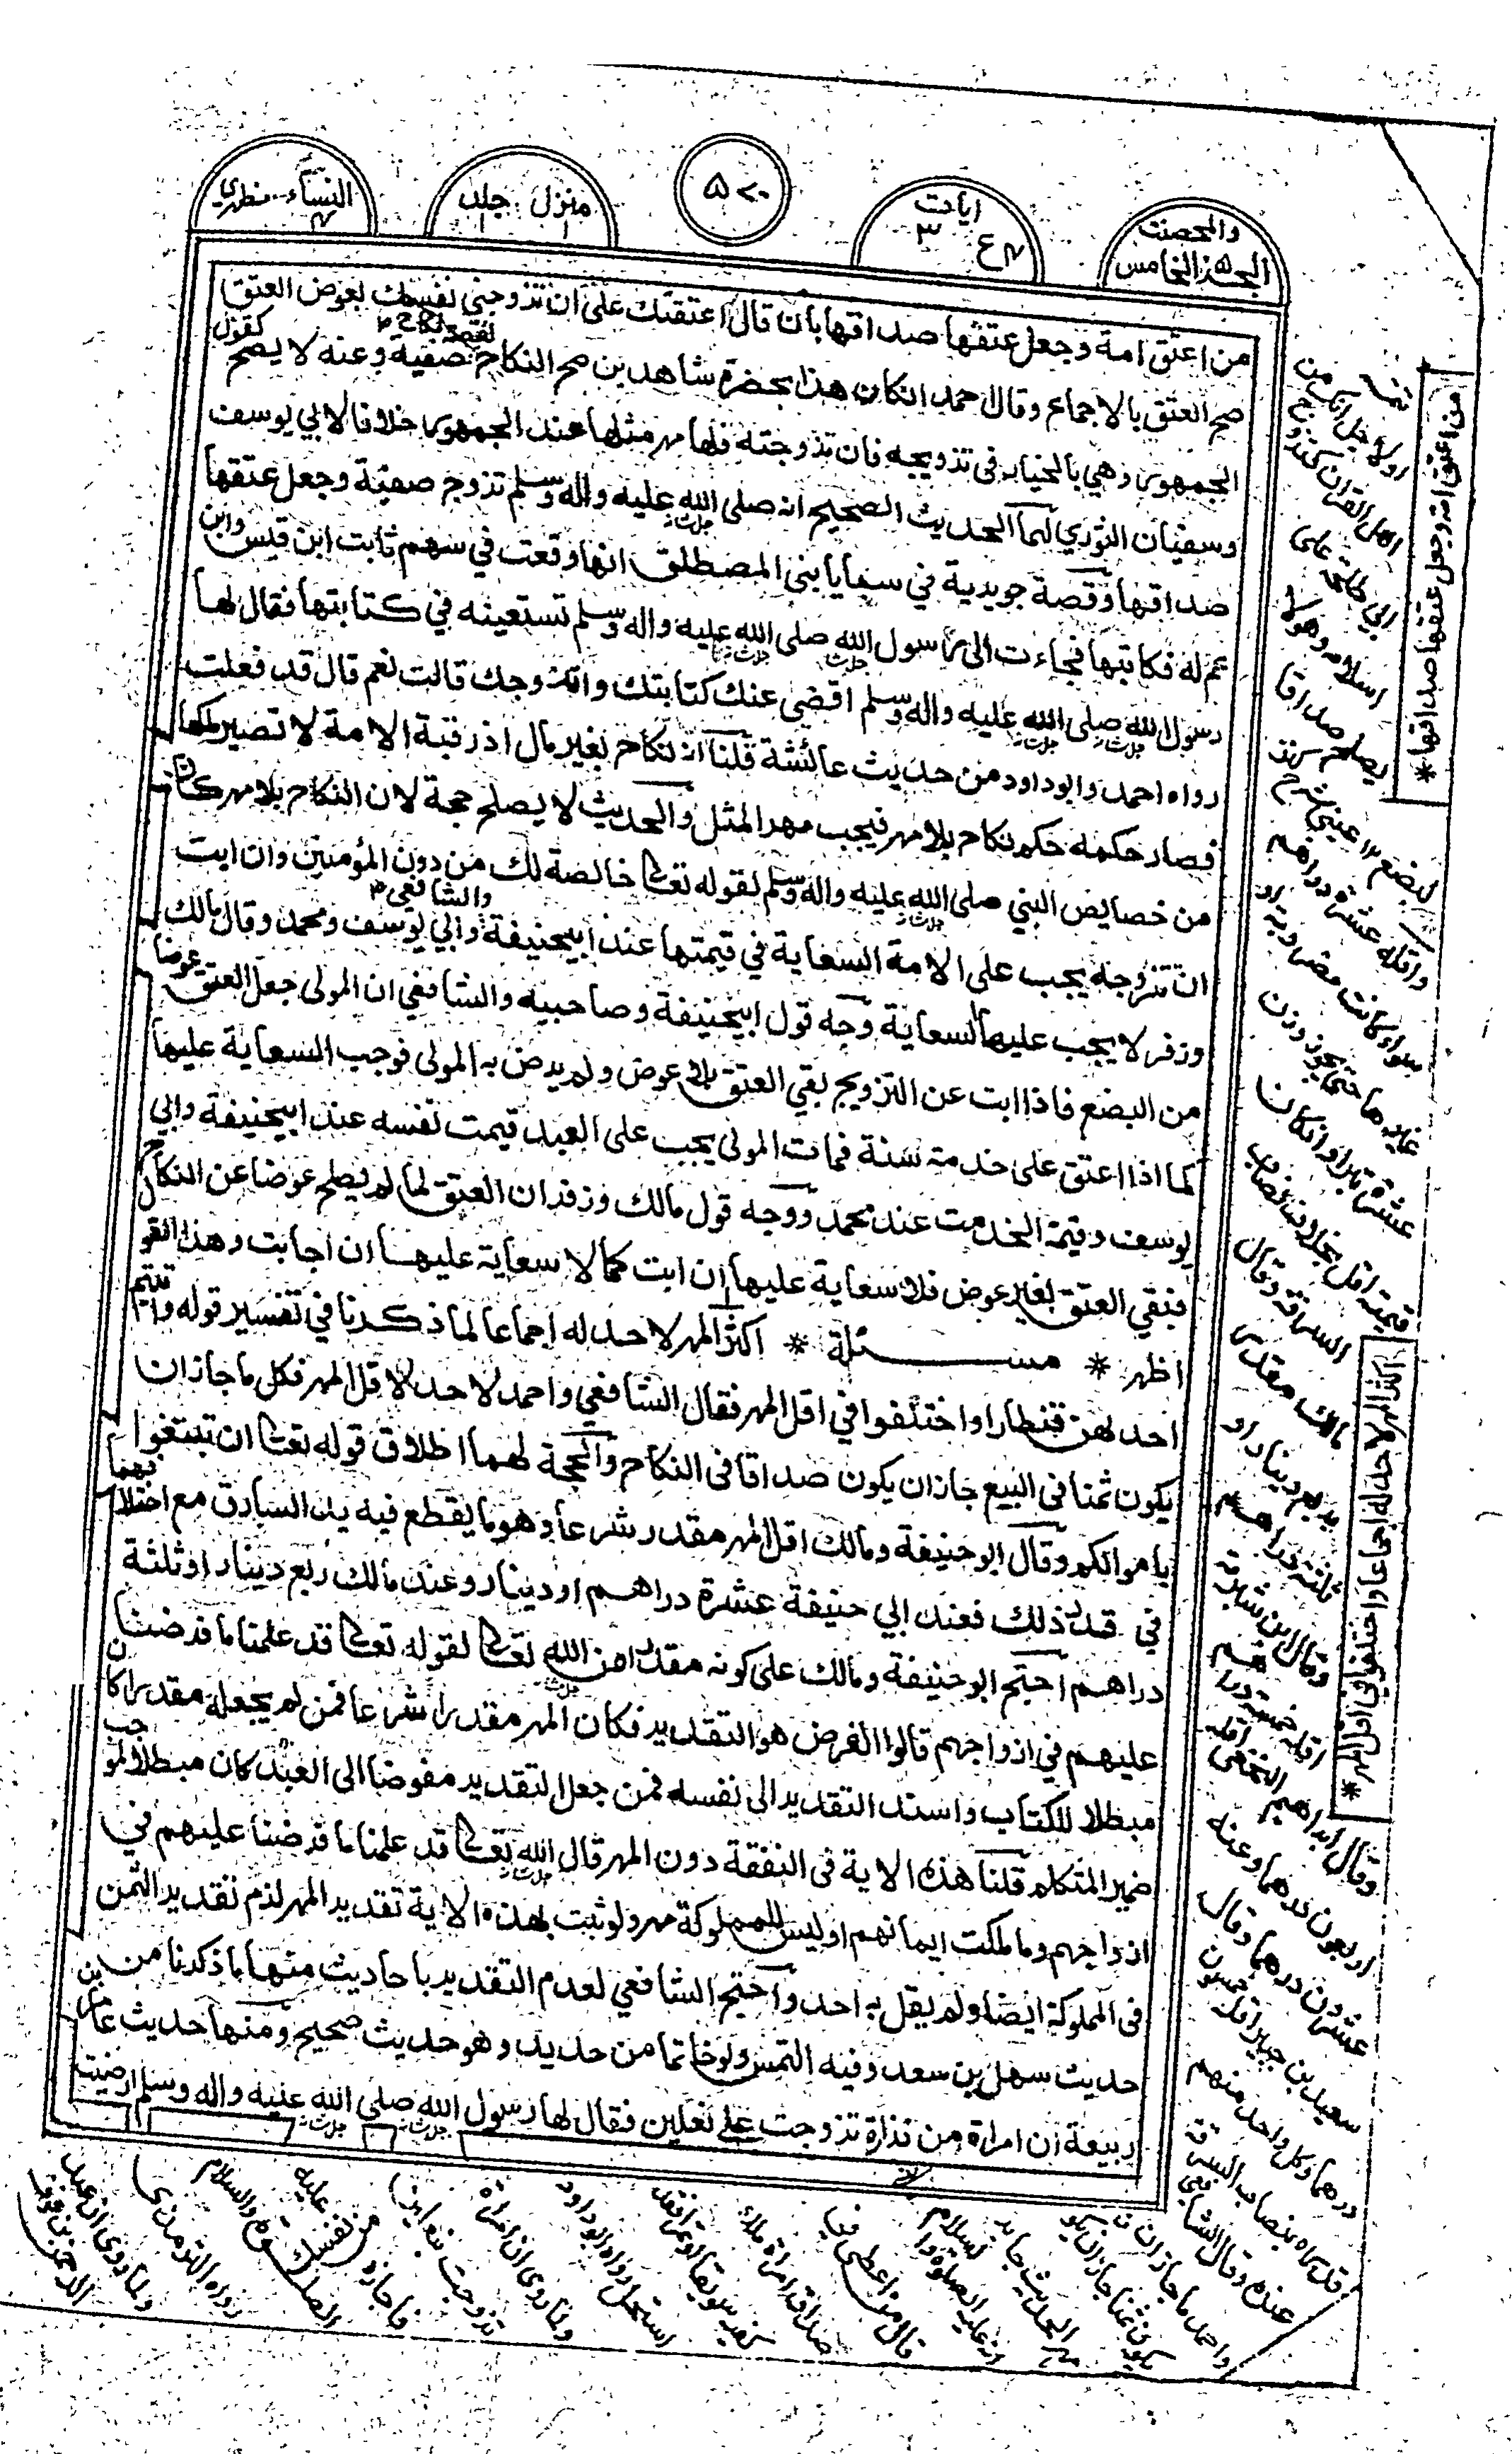 والمحصنت
الجزء الخامس
ايات
٣
ع ٤
٥٧٠
منزل ١ جلد ١
النساء ٤ مظهري
من اعتق امة وجعل عتقها صداقها بان قال اعتقتك على ان تزوجني نفسك بعوض العتق
صح العتق بالاجماع وقال احمد ان كان هذا بحضرة شاهدين صح النكاح لقصة نكاح صفية وعنه لا يصح كقول
الجمهور وهي بالخيار في تزويجه فان تزوجته فلها مهر مثلها عند الجمهور خلافا لابي يوسف
وسفيان الثوري لهما الحديث الصحيح انه صلى الله عليه واله وسلم تزوج صفية وجعل عتقها
صداقها وقصة جويرية في سبايا بني المصطلق انها وقعت في سهم ثابت ابن قيس وابن
عم له فكاتبها فجاءت الى رسول الله صلى الله عليه واله وسلم تستعينه في كتابتها فقال لها
رسول الله صلى الله عليه واله وسلم اقضي عنك كتابتك واتزوجك قالت نعم قال قد فعلت
رواه احمد وابوداود من حديث عائشة قلنا انه نكاح بغير مال اذ رقبة الامة لا تصير ملكها
فصار حكمه حكم نكاح بلا مهر فيجب مهر المثل والحديث لا يصلح حجة لان النكاح بلا مهر كان
من خصايص النبي صلى الله عليه واله وسلم لقوله تعالى خالصة لك من دون المؤمنين وان ابت
ان تتزوجه يجب على الامة السعاية في قيمتها عند ابيحنيفة وابي يوسف ومحمد والشافعي وقال مالك
وزفر لا يجب عليها السعاية وجه قول ابيحنيفة وصاحبيه والشافعي ان المولى جعل العتق عوضا
من البضع فاذا ابت عن التزويج بقي العتق بلا عوض ولم يرض به المولى فوجب السعاية عليها
كما اذا اعتق على خدمته سنة فمات المولى يجب على العبد قيمت نفسه عند ابيحنيفة وابي
يوسف وقيمة الخدمت عند محمد ووجه قول مالك وزفر ان العتق لما لم يصلح عوضا عن النكاح
فبقي العتق بغير عوض فلا سعاية عليها ان ابت كما لا سعاية عليها ان اجابت وهذا القول
اظهر * مسئلة * اكثر المهر لا حد له اجماعا لما ذكرنا في تفسير قوله واتيتم
احدٰهن قنطارا واختلفوا في اقل المهر فقال الشافعي واحمد لا حد لاقل المهر فكل ما جاز ان
يكون ثمنا في البيع جاز ان يكون صداقا في النكاح والحجة لهما اطلاق قوله تعالى ان تبتغوا
باموالكم وقال ابوحنيفة ومالك اقل المهر مقدر شرعا وهو ما يقطع فيه يد السارق مع اختلافهما
في قدر ذلك فعند ابي حنيفة عشرة دراهم او دينار وعند مالك ربع دينار او ثلثة
دراهم احتج ابوحنيفة ومالك على كونه مقدرا من الله تعالى لقوله تعالى قد علمنا ما فرضنا
عليهم في ازواجهم قالوا الفرض هو التقدير فكان المهر مقدرا شرعا فمن لم يجعله مقدرا كان
مبطلا للكتاب واسند التقدير الى نفسه فمن جعل التقدير مفوضا الى العبد كان مبطلا لموجب
ضمير المتكلم قلنا هذه الاية في النفقة دون المهر قال الله تعالى قد علمنا ما فرضنا عليهم في
ازواجهم وما ملكت ايمانهم اوليس للمملوكة مهر ولو ثبت بهذه الاية تقدير المهر لزم تقدير الثمن
في المملوكة ايضا ولم يقل به احد واحتج الشافعي لعدم التقدير باحاديث منها ما ذكرنا من
حديث سهل بن سعد وفيه التمس ولو خاتما من حديد وهو حديث صحيح ومنها حديث عامر بن
ربيعة ان امراة من فزارة تزوجت على نعلين فقال لها رسول الله صلى الله عليه واله وسلم ارضيت
من اعتق امة وجعل عتقها صداقها *
اكثر المهر لا حد له اجماعا واختلفوا في اقل المهر *
اسلامه وهو لا
يصلح صداقا
واقله عشرة دراهم
سواء كانت مضروبة او
غيرها حتى يجوز وزن
عشرة تبرا وان كان
قيمته اقل بخلاف نصاب
السرقة وقال
مالك مقدر
بربع دينار او
ثلثة دراهم
وقال ابن شبرمة
اقله خمسة دراهم
وقال ابراهيم النخعي اقله
اربعون درهما وعنه
عشرون درهما وقال
سعيد بن جبير اقله خمسون
درهما وكل واحد منهم
قدره بنصاب السرقة
عنده وقال الشافعي
واحمد ما جاز ان
يكون ثمنا جاز ان يكون
مهرا لحديث جابر
انه عليه الصلوة والسلام
قال من اعطى في
صداق امراة ملاء
كفيه سويقا او تمرا فقد
استحل رواه ابوداود
ولما روى ان امراة
تزوجت بنعلين
فاجازه عليه
الصلوة والسلام
رواه الترمذي
ولما روى ان عبد
الرحمن بن عوف